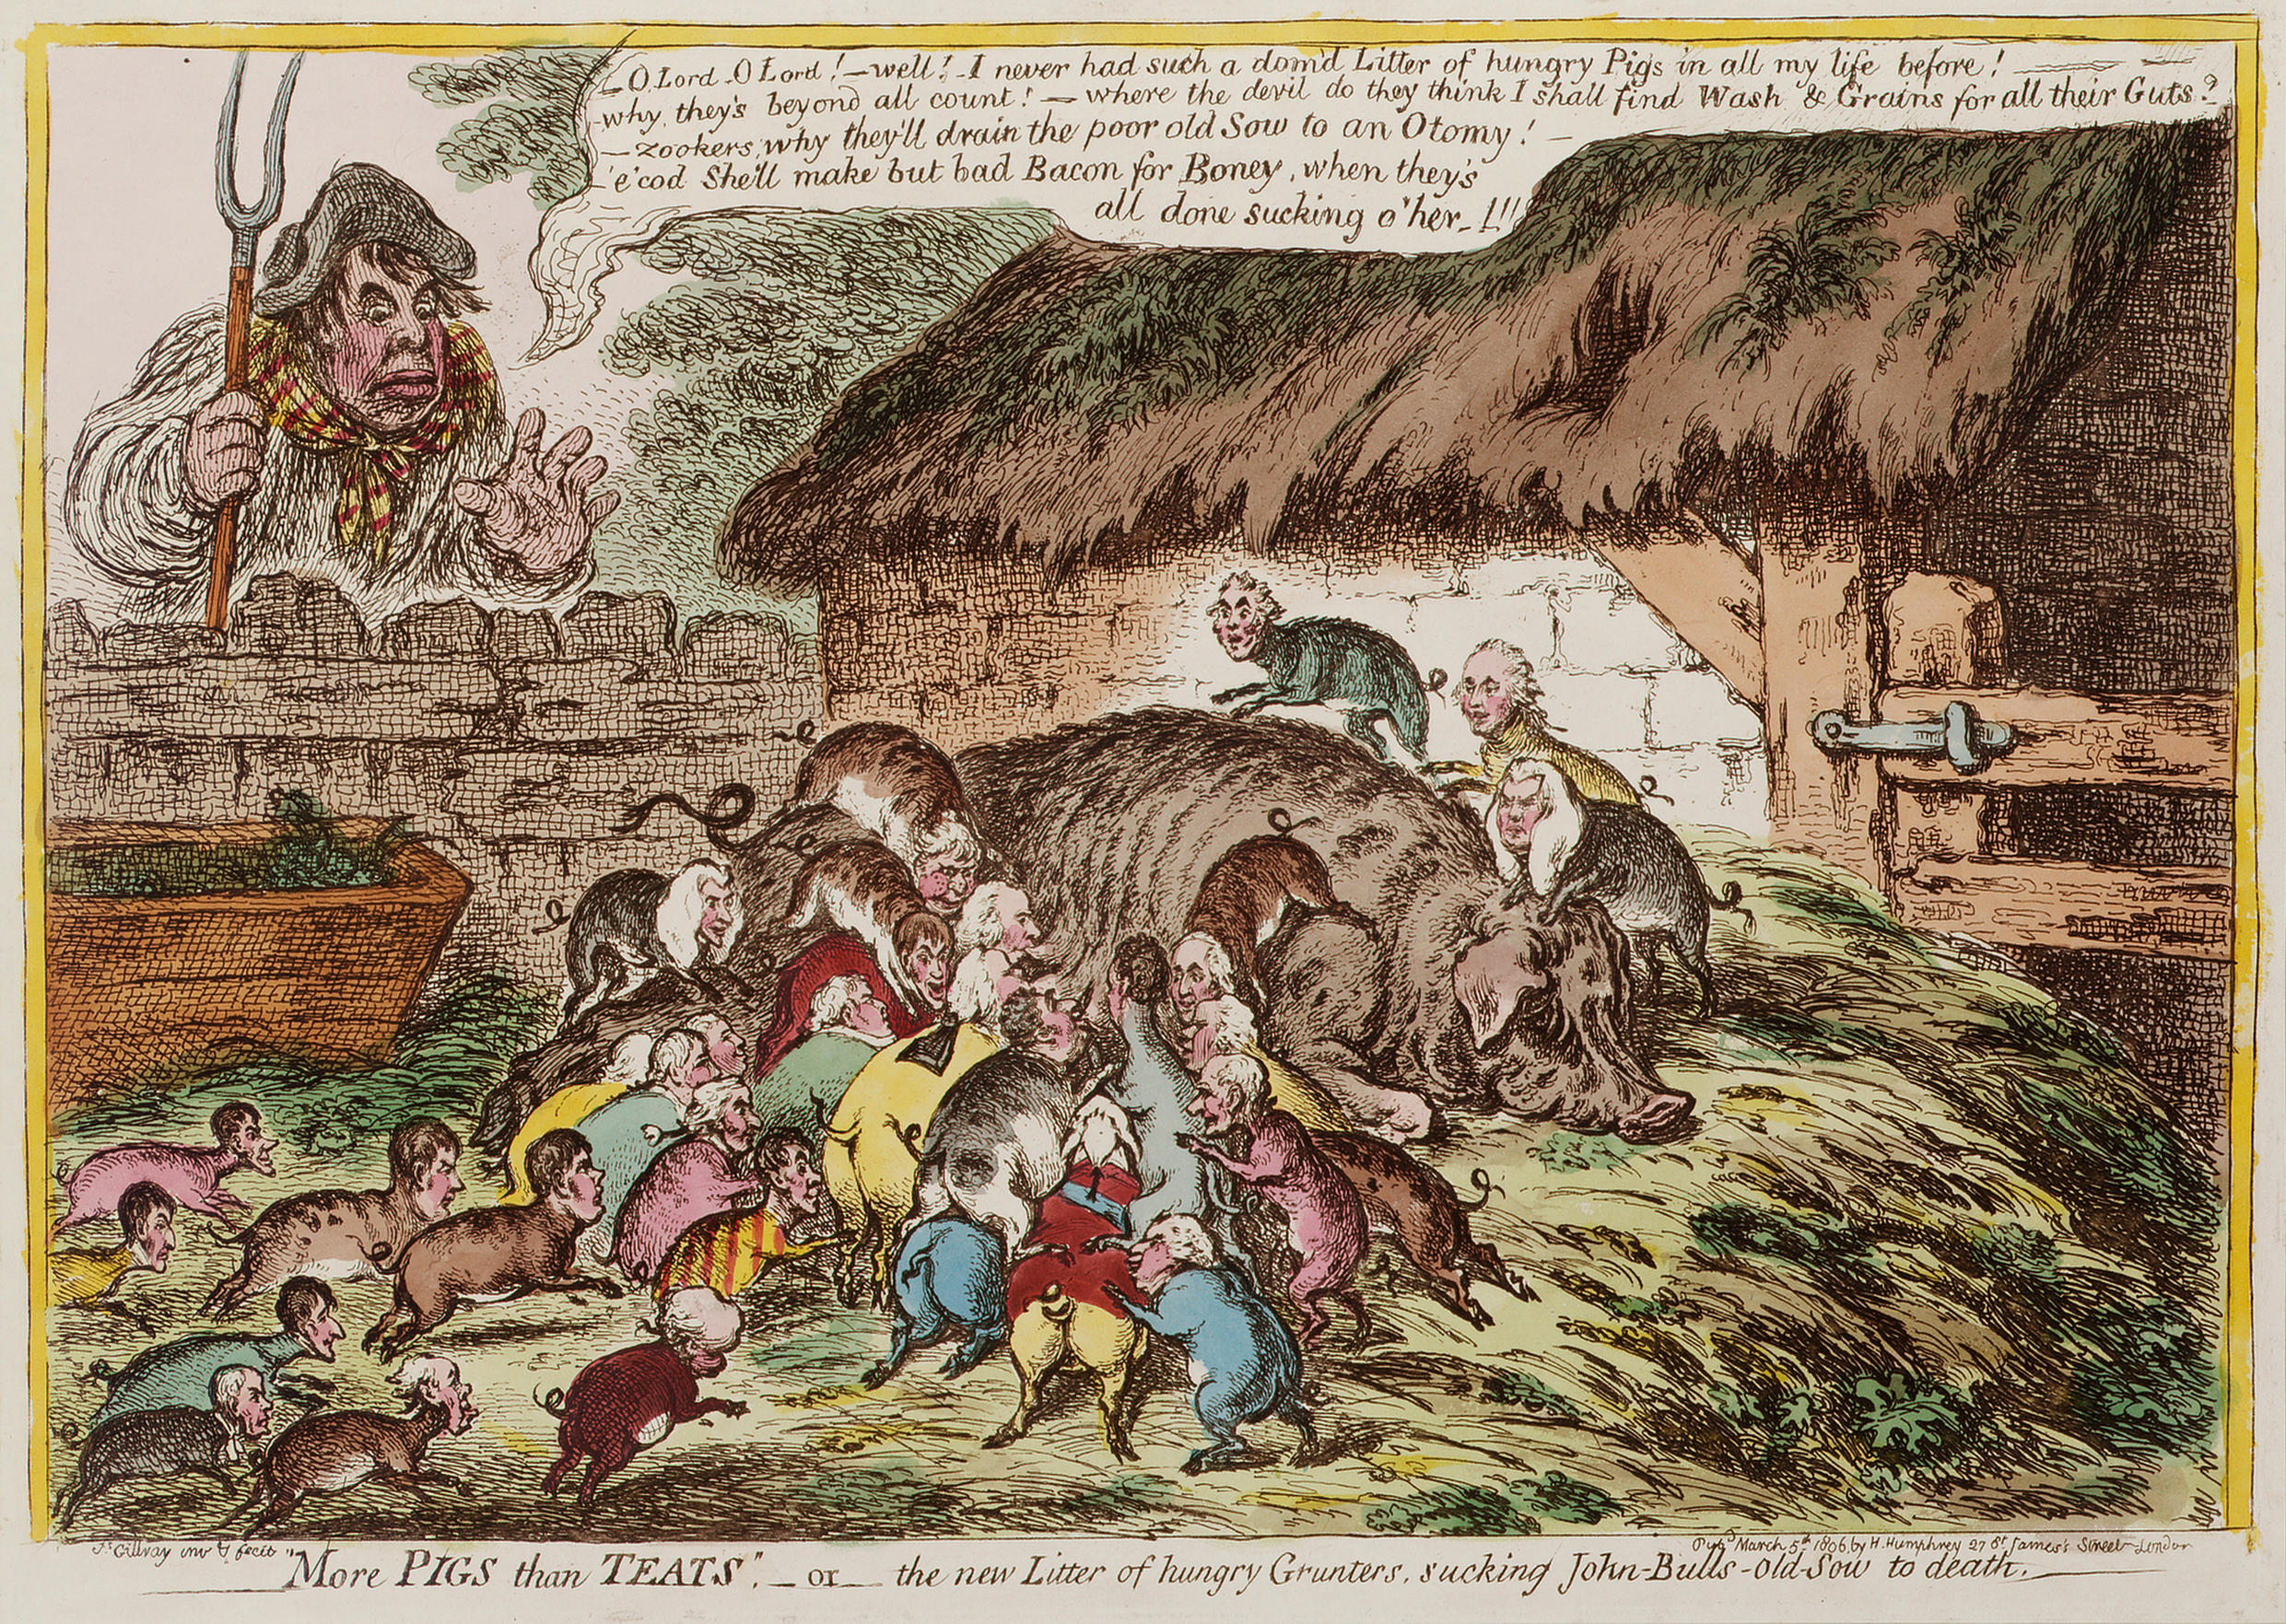 - O, Lord - O Lord! - well! - I never had such a dom'd Litter of hungry Pigs in all my life before! —
- why, they's beyond all count! - where the devil do they think I shall find Wash & Grains for all their Guts?
- zookers, why they'll drain the poor old Sow to an 'Otomy! -
- 'e'cod She'll make but bad Bacon for Boney, when they's
all done sucking o'her - !!!
Js Gillray inv & fecit
Pubd March 5th 1806, by H. Humphrey 27 St James's Street London
"More PIGS than TEATS". - or - the new Litter of hungry Grunters, sucking John-Bulls-old-Sow to death.